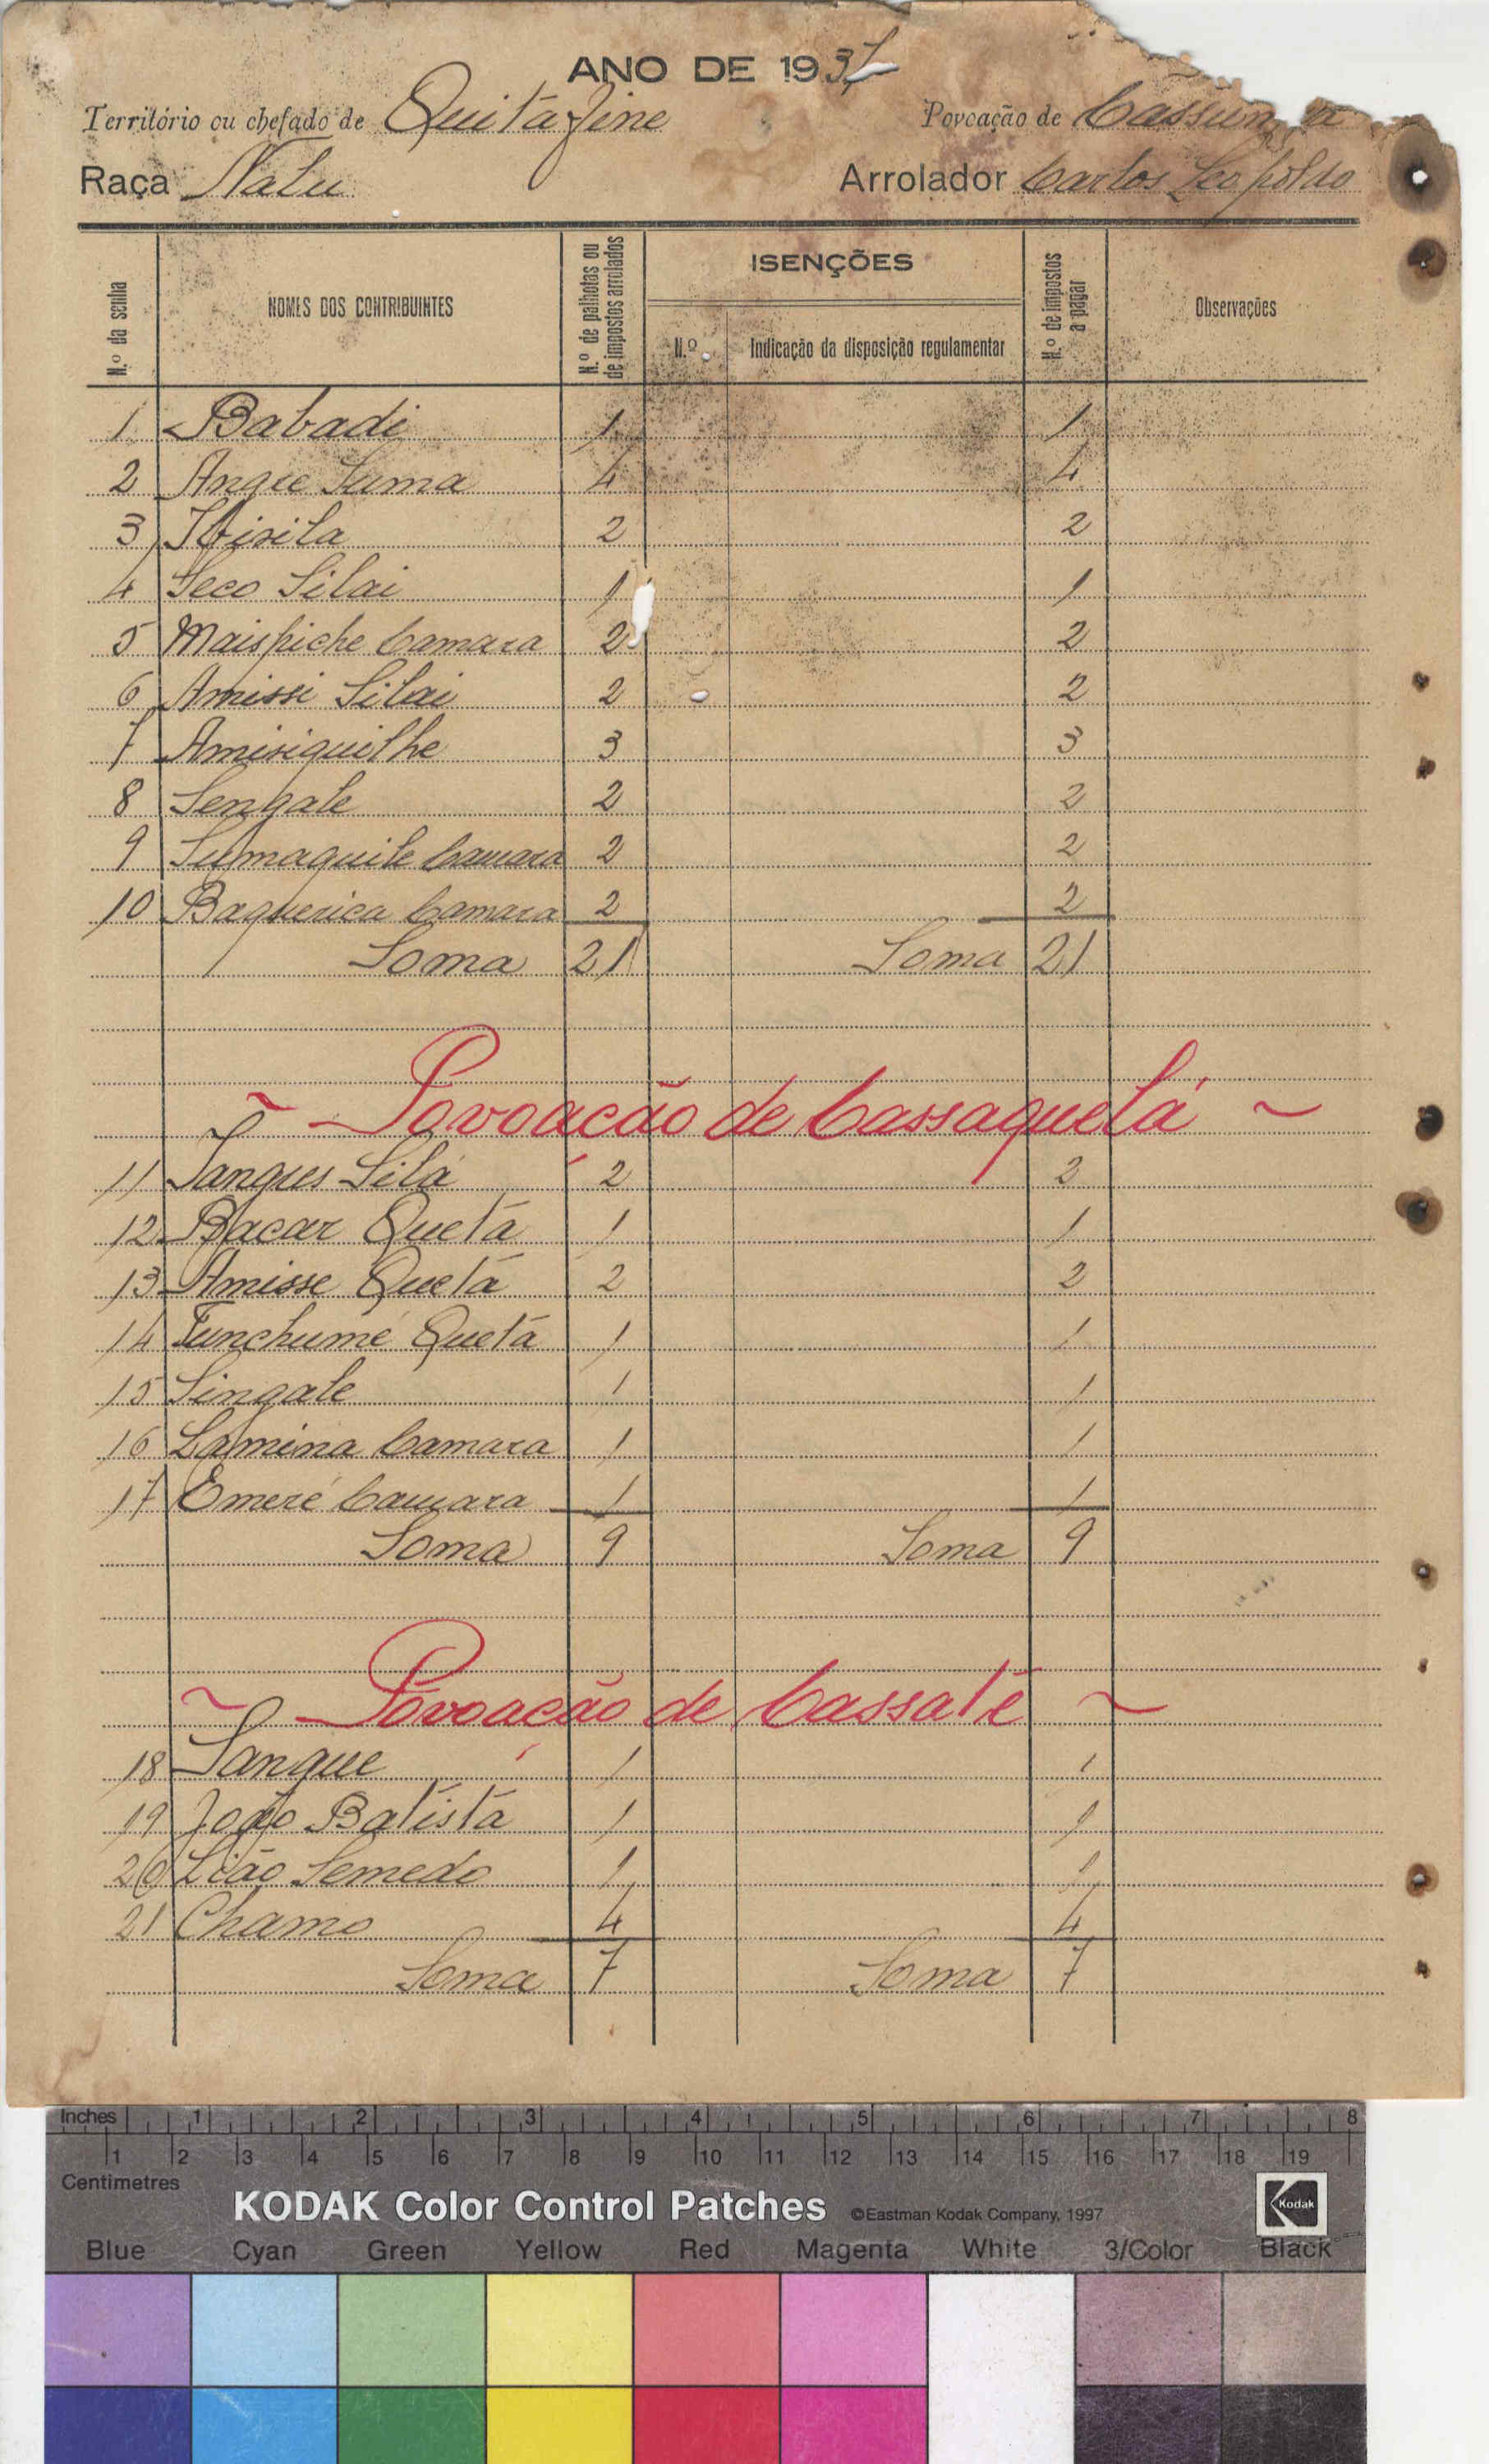 ANO DE 1937
Território ou chefado de Quitafine Povoação de
Raça Nalu Arrolador Carlos Leopoldo
N.º da senha NOMES DOS CONTRIBUINTES N.º de palhotas ou de impostos arrolados ISENÇÕES N.º de impostos a pagar Observações
N.º Indicação da disposição regulamentar
1 Babadi 1 1
2 Angue Suma 4 4
3 2 2
4 Seco Silai 1 1
5 Maispiche Camara 2 2
6 Amissi Silai 2 2
7 Amisiquilhe 3 3
8 Sengale 2 2
9 Sumaquile Camara 2 2
10 Baquerica Camara 2 2
Soma 21 Soma 21
~ Povoação de Cassaquelá ~
11 Sangus Silá 2 2
12 Bacar Quetá 1 1
13 Amisse Quetá 2 2
14 Funchumé Quetá 1 1
15 Singale 1 1
16 Lamina Camara 1 1
17 Emeré Camara 1 1
Soma 9 Soma 9
~ Povoação de Cassalé ~
18 Sangue 1 1
19 João Batista 1 1
20 Lião Semedo 1 1
21 Chamo 4 4
Soma 7 Soma 7
Inches 1 2 3 4 5 6 7 8
1 2 3 4 5 6 7 8 9 10 11 12 13 14 15 16 17 18 19
Centimetres
KODAK Color Control Patches ©Eastman Kodak Company, 1997 Kodak
Blue Cyan Green Yellow Red Magenta White 3/Color Black